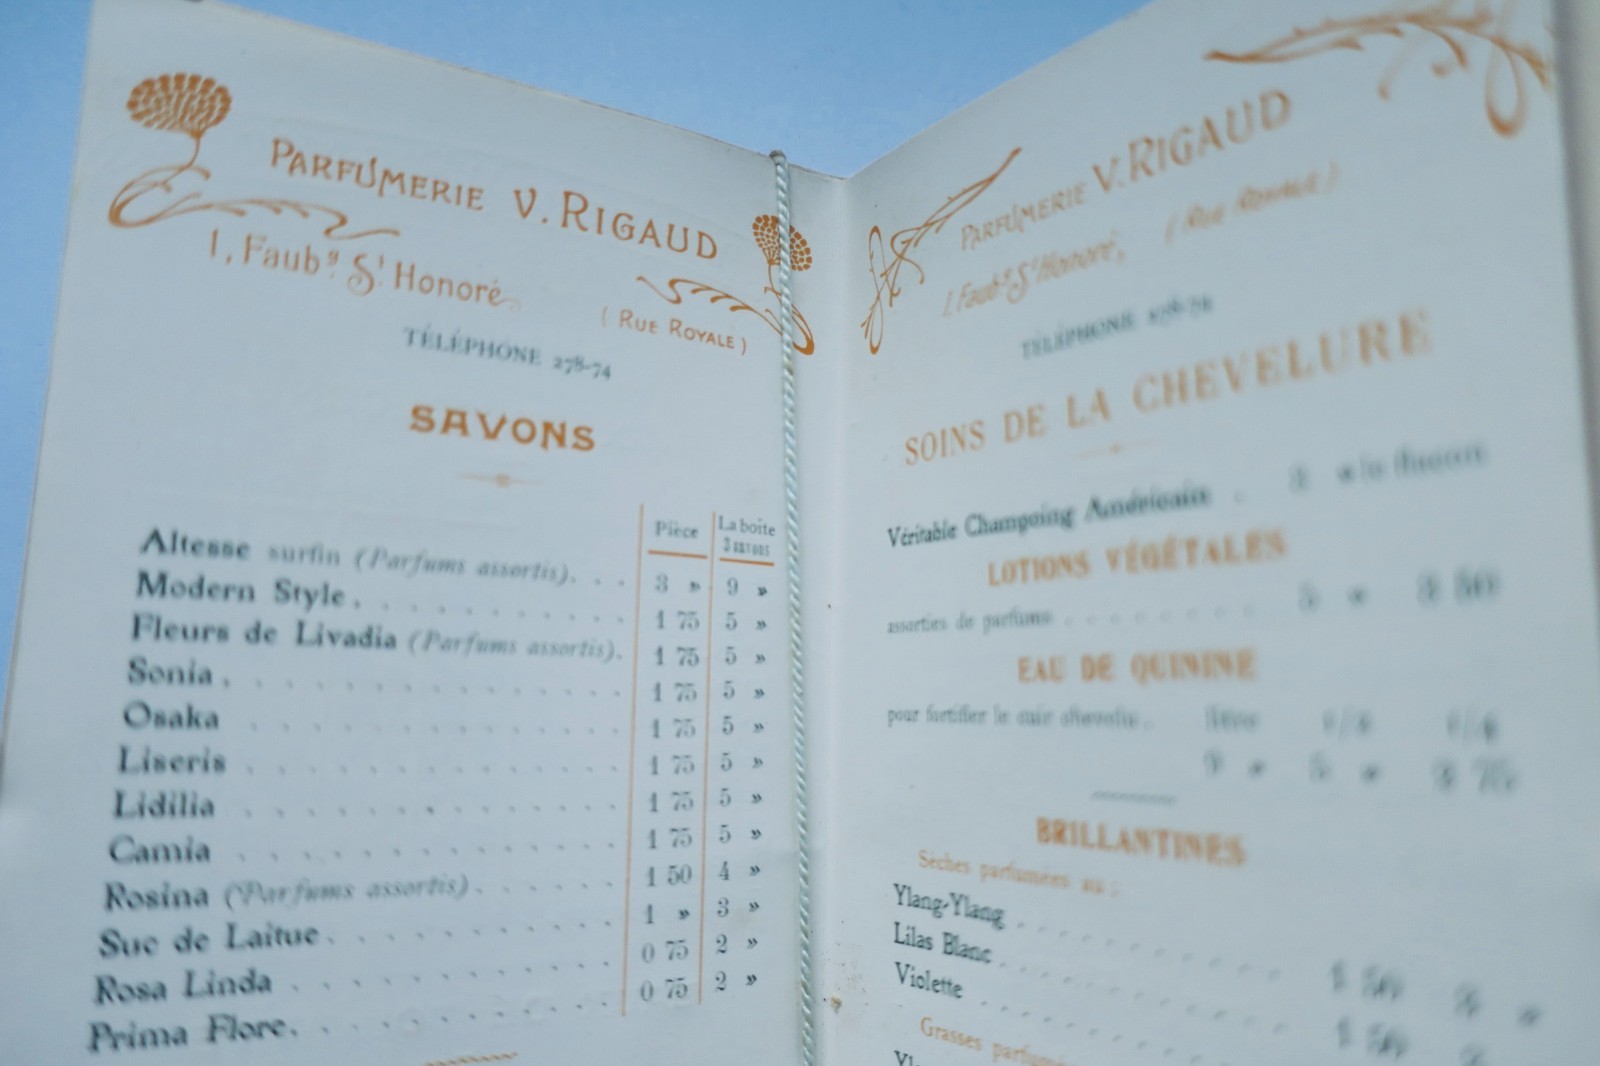 PARFUMERIE V. RIGAUD
1, Faubg St Honoré
(RUE ROYALE)
TÉLÉPHONE 278-74
SAVONS
Pièce La boîte 3 savons
Altesse surfin (Parfums assortis). . . 3 » 9 »
Modern Style. . . . . . . . . . . 1 75 5 »
Fleurs de Livadia (Parfums assortis). 1 75 5 »
Sonia. . . . . . . . . . . . . . 1 75 5 »
Osaka . . . . . . . . . . . . . 1 75 5 »
Liseris . . . . . . . . . . . . . 1 75 5 »
Lidilia . . . . . . . . . . . . . 1 75 5 »
Camia . . . . . . . . . . . . . 1 75 5 »
Rosina (Parfums assortis). . . . . . 1 50 4 »
Suc de Laitue. . . . . . . . . . . 1 » 3 »
Rosa Linda . . . . . . . . . . . . 0 75 2 »
Prima Flore. . . . . . . . . . . . 0 75 2 »
PARFUMERIE V. RIGAUD
1 Faubg St Honoré, (RUE ROYALE)
TÉLÉPHONE 278-74
SOINS DE LA CHEVELURE
Véritable Champoing Américain . 3 » le flacon
LOTIONS VÉGÉTALES
assorties de parfums . . . . . . . . . 5 » 3 50
EAU DE QUININE
pour fortifier le cuir chevelu . litre 1/2 1/4
9 » 5 » 2 75
BRILLANTINES
Sèches parfumées au :
Ylang-Ylang . . . . . . . . . . . . 1 50 3 »
Lilas Blanc . . . . . . . . . . . . 1 50
Violette . . . . . . . . . . . .
Grasses parfumé